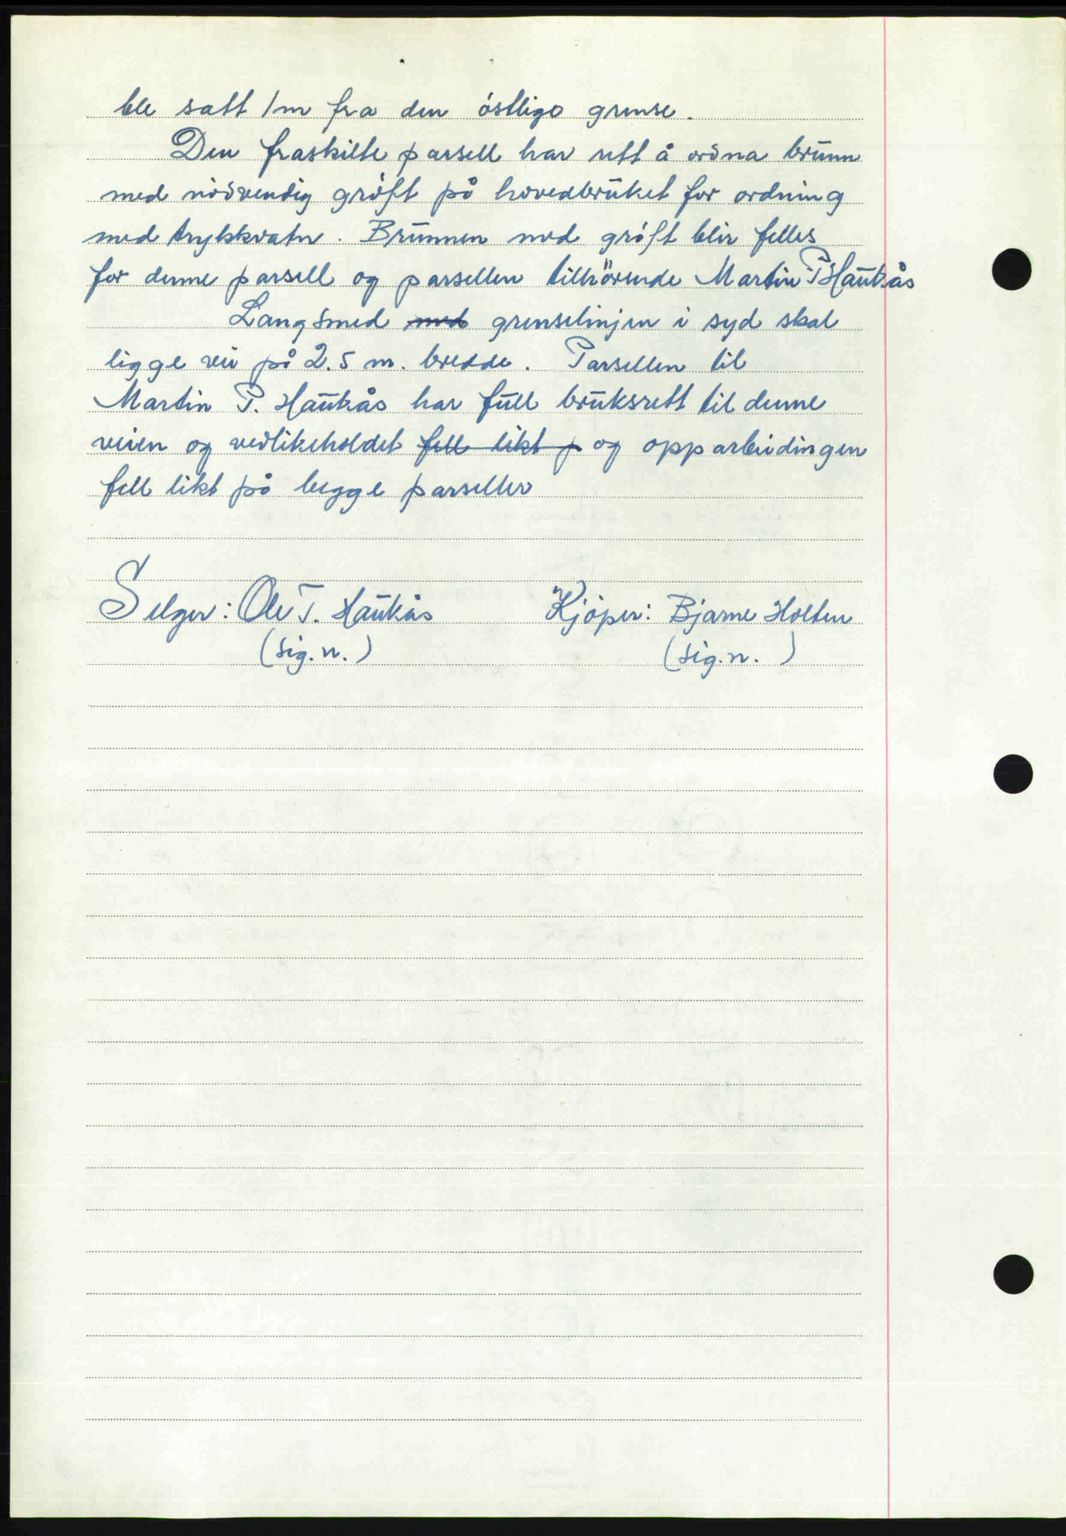 ble satt 1 m fra den østlige grense.
Den fraskilte parsell har rett å ordna brunn
med nödvendig grøft på hovedbruket for ordning
med trykkvatn. Brunnen med grøft blir felles
for denne parsell og parsellen tilhörende Martin P Haukås
Langsmed med grenselinjen i syd skal
ligge vei på 2.5 m. bredde. Parsellen til
Martin P. Haukås har full bruksrett til denne
veien og vedlikeholdet fell likt p og opparbeidingen
fell likt på begge parseller
Selger: Ole T. Haukås Kjöper: Bjarne Holten
(sig.n.) (sig.n.)